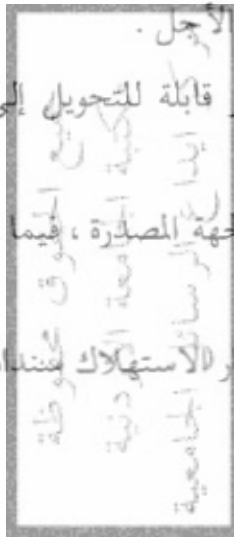 الأجل .
قابلة للتحويل إلى
جهة المصدرة ، فيما
الاستهلاك
جميع الحقوق محفوظة
مكتبة الجامعة الاردنية
مركز ايداع الرسائل الجامعية